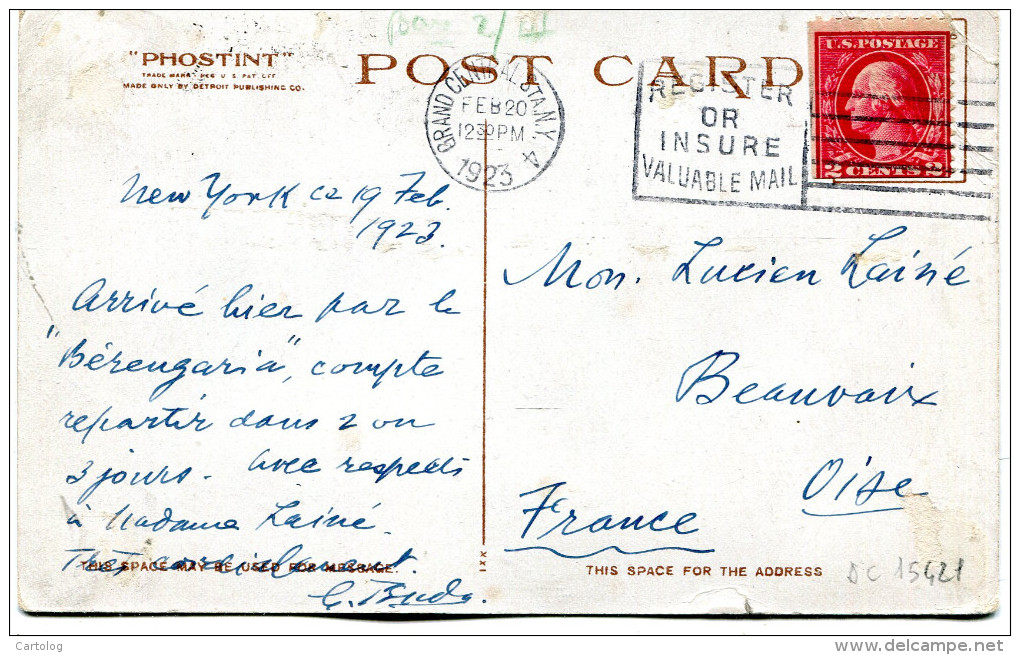 "PHOSTINT"
TRADE MARK REG U.S. PAT. OFF
MADE ONLY BY DETROIT PUBLISHING CO.
POST CARD
GRAND CENTRAL STA. N.Y.
FEB 20
12 30 PM
1923
4
REGISTER
OR
INSURE
VALUABLE MAIL
U.S. POSTAGE
2 CENTS 2
New York ce 19 Feb.
1923.
Arrivé hier par le
"Bérengaria", compte
repartir dans 2 ou
3 jours. Avec respects
à Madame Lainé.
Très cordialement.
THIS SPACE MAY BE USED FOR MESSAGE.
Mon. Lucien Lainé
Beauvaix
Oise
France
XXI
THIS SPACE FOR THE ADDRESS
DC 15421
Cartolog
www.delcampe.net